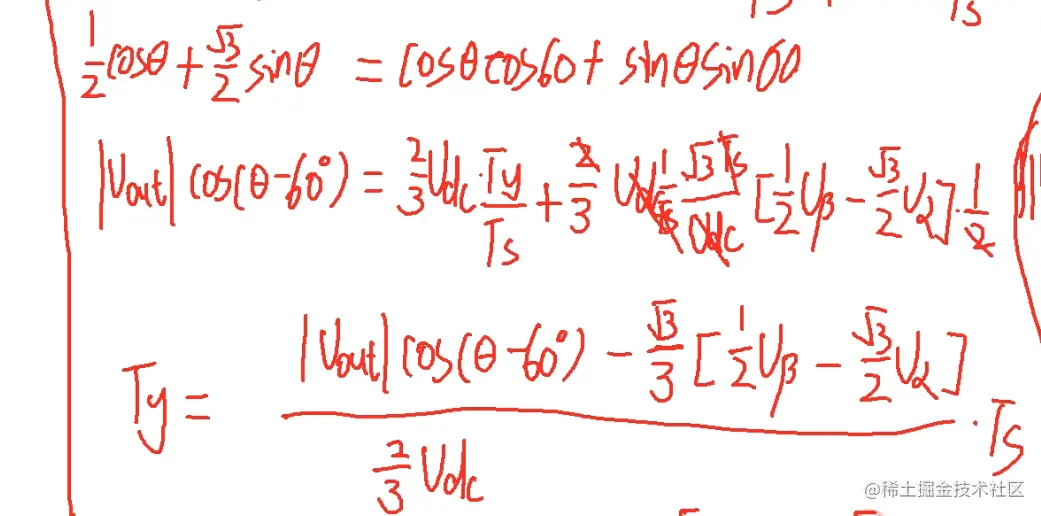 Ts
½cosθ + √3/2 sinθ = cosθcos60 + sinθsin60
|Uout| cos(θ-60°) = 2/3 Udc · Ty/Ts + 2/3 Udc 1/Ts √3Ts/Udc [1/2 Uβ - √3/2 Uα] · 1/2
Ty = (|Uout| cos(θ-60°) - √3/3 [1/2 Uβ - √3/2 Uα]) / (2/3 Udc) · Ts
@稀土掘金技术社区